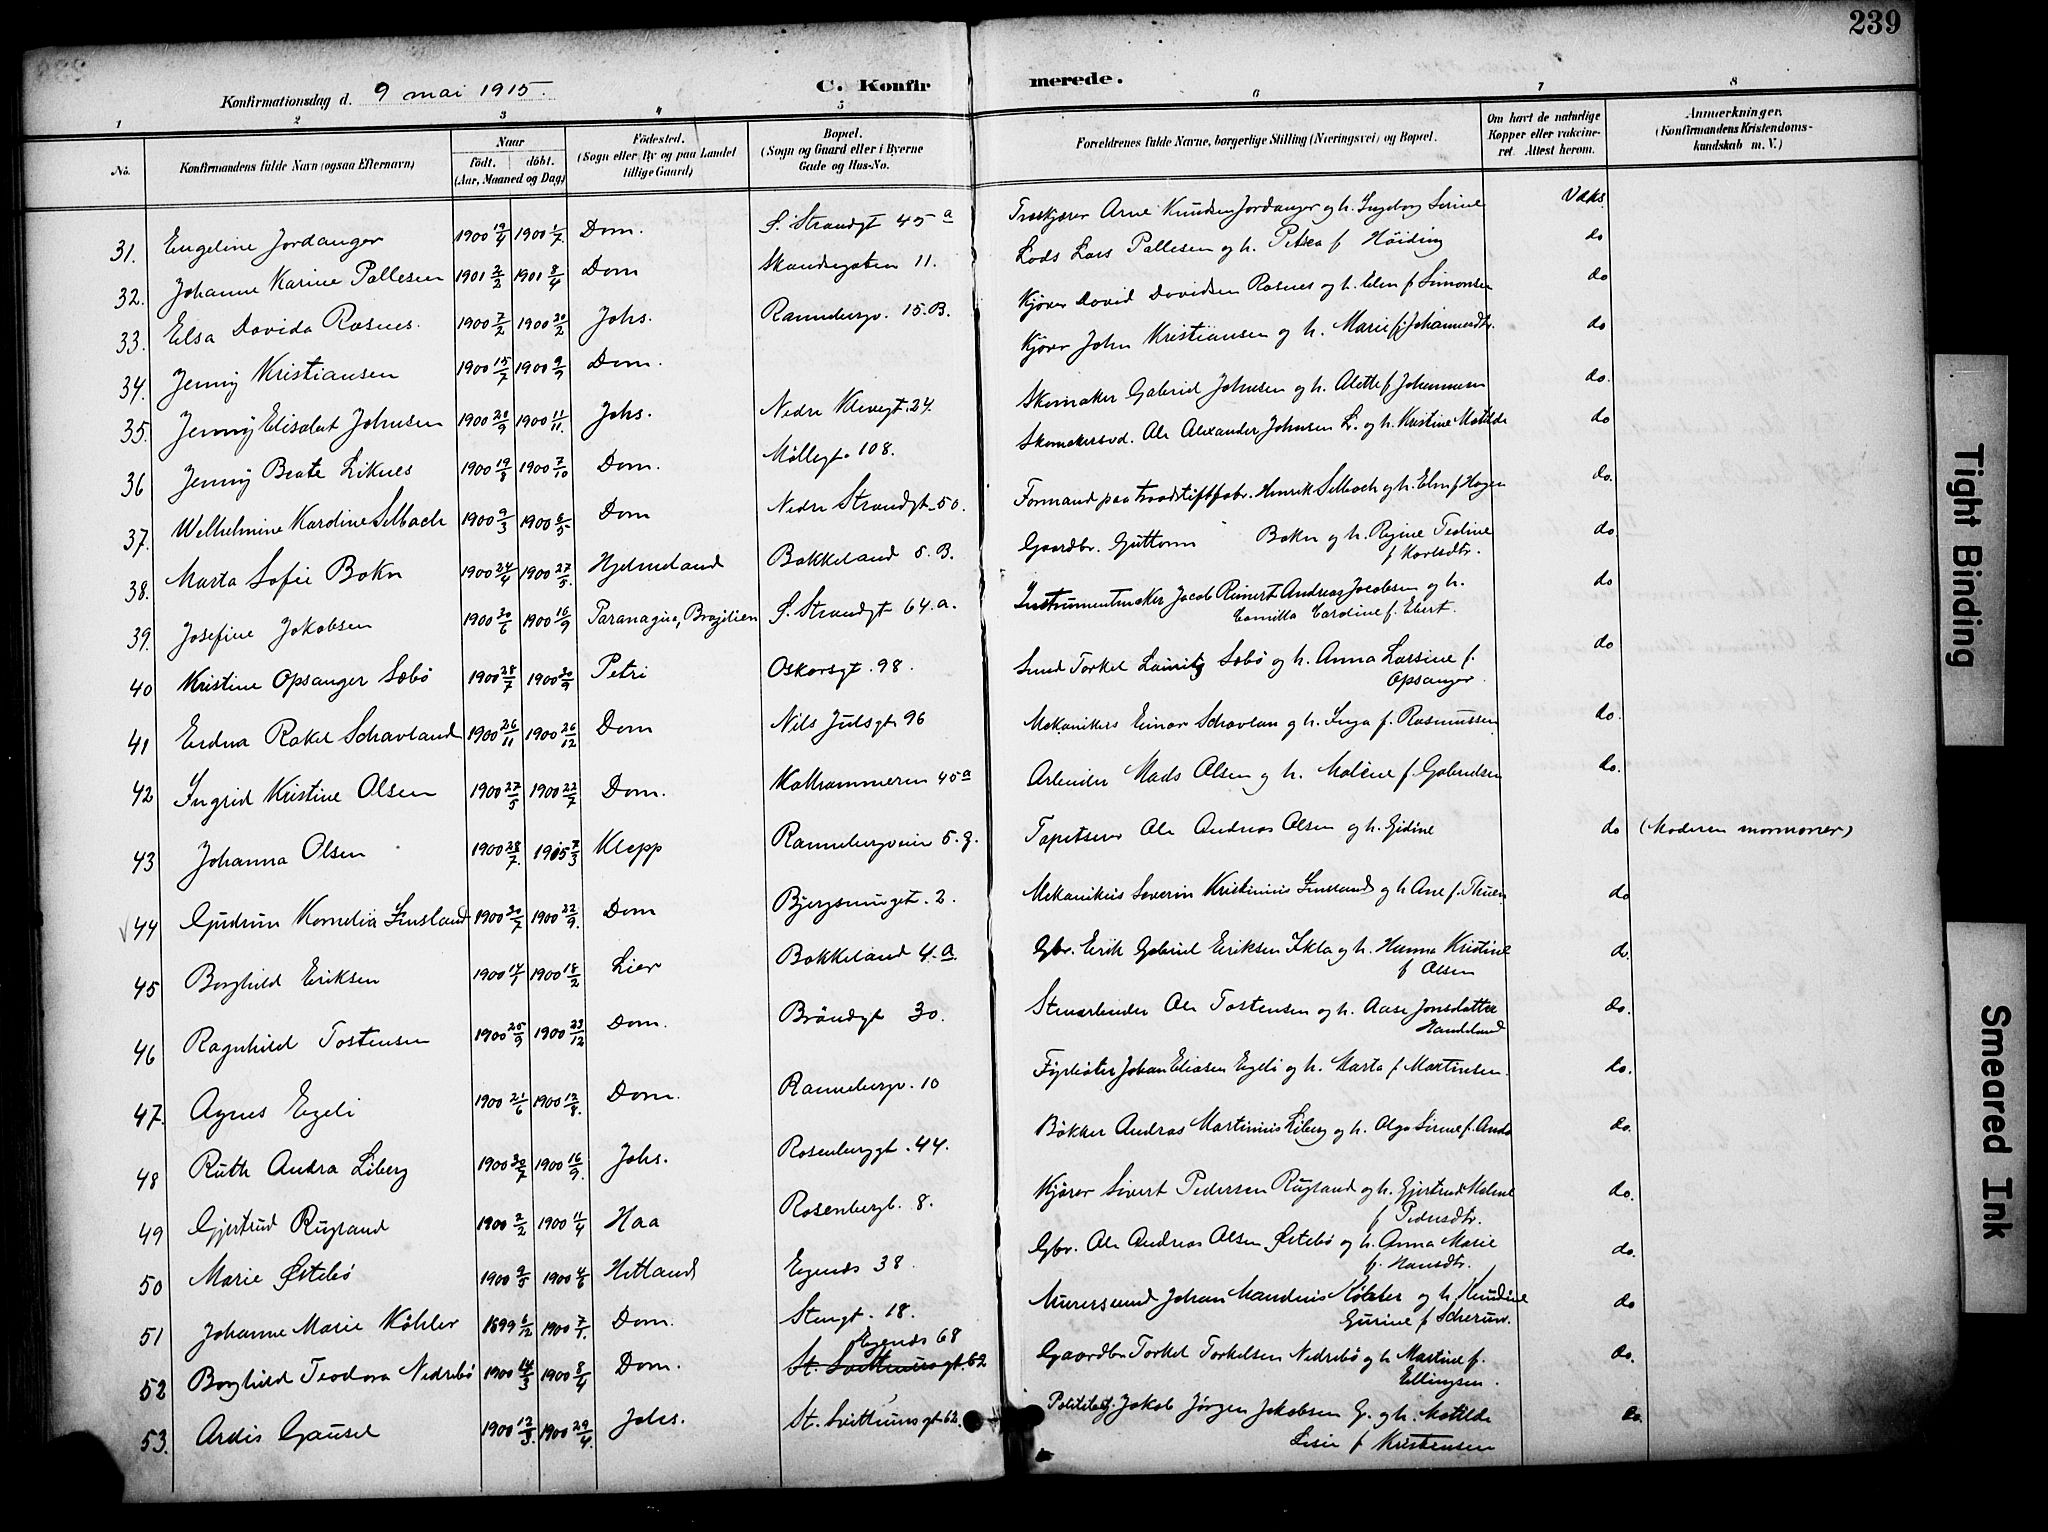 239
Konfirmationsdag d. 9 mai 1915. C. Konfirmerede.
1 2 3 4 5 6 7 8
No. Konfirmandens fulde Navn (ogsaa Efternavn) Naar födt. döbt. (Aar, Maaned og Dag) Födested. (Sogn eller By og paa Landet tillige Gaard) Bopæl. (Sogn og Gaard eller i Byerne Gade og Hus-No. Forældrenes fulde Navne, borgerlige Stilling (Næringsvei) og Bopæl. Om havt de naturlige Kopper eller vakcineret. Attest herom. Anmærkninger. (Konfirmandens Kristendomskundskab m. V.)
31. Engeline Jordanger 1900 19/4 1900 1/7 Dom. S. Strandgt 45 a Arne Knudsen Jordanger og h. Ingeborg Serine Vaks.
32. Johanne Karine Pallesen 1901 2/2 1901 8/4 Dom Skandsegaten 11. Lods Lars Pallesen og h. Petrea f Höiding do
33. Elsa Davida Rosnes. 1900 7/2 1900 20/2 Johs. Rannebergv. 15.B. Kjörer David Davidsen Rosnes og h. Elen f Simonsen do
34. Jenny Kristiansen 1900 15/7 1900 9/9 Dom. Kjörer John Kristiansen og h. Marie f. Johannesdtr. do
35. Jenny Elisabet Johnsen 1900 20/9 1900 11/11. Johs. Nedre Klevegt. 24. Skomaker Gabriel Johnsen og h. Alette f Johannesen do.
36 Jenny Beate Liknes 1900 19/8 1900 7/10 Dom. Möllegt. 108. Skomakersvd. Ole Alexander Johnsen L. og h. Kristine Matilde do
37. Welhelmine Kardine Selbach 1900 9/3 1900 6/5 Dom Nedre Strandgt. 50. Formand paa traadstiftfabr. Henrik Selbach og h. Elen f Hagen do.
38. Marta Sofie Bokn 1900 24/4 1900 27/5. Hjelmeland Bakkeland 5.B. Gaardbr. Guttorm Bokn og h. Regine Teoline f Karlsdtr. do
39. Josefine Jakobsen 1900 30/6 1900 16/9 Paranagua, Brazilien S. Strandgt 64.a. Instrumentmaker Jacob Reinert Andreas Jacobsen og h. Camilla Cardine f. Ebert. do
40 Kristine Opsanger Sæbö 1900 28/7 1900 30/9 Petri Oskarsgt. 98. Smed Torkel Lauritz Sæbö og h. Anna Larsine f. Opsanger. do
41 Erdna Rakel Schavland 1900 26/11 1900 26/12 Dom Nils Julsgt 96 Mekanikers Einar Schavlan og h. Inga f. Rasmussen do.
42 Ingrid Kristine Olsen 1900 27/5 1900 22/7 Dom. Kattrammeren 45a Arbeider Mads Olsen og h. Malene f. Gabrielsen do.
43 Johanna Olsen 1900 28/7. 1915 7/3 Klepp Rannebergveien 5.g. Tapetserer Ole Andreas Olsen og h. Gjdine do (Moderen mormoner)
44 Gudrun Kornelia Insland 1900 20/7 1900 22/9. Dom Bjergsmuget. 2. Mekanikus Severin Kristinius Insland og h Ane f. Thuen do
45 Borghild Eriksen 1900 14/1 1900 18/2 Lier Bakkeland 4.a. Gbr. Eerik Gabriel Eriksen og h. Hanna Kristine f Olsen do.
46 Ragnhild Tostensen 1900 25/9 1900 23/12 Dom. Bröndgt 30. Stenarbeider Ole Tostensen og h. Aase Jonsdatter do.
47. Agnes Egeli 1900 21/6 1900 12/8. Dom. Rannebergv. 10 Fyrböter Johan Eliasen Egeli og h. Marta f Martinsen. do.
48 Ruth Andra Liberg 1900 30/7 1900 16/9. Johs. Rosenberggt. 44. Bökker Andras Martinius Liberg og h. Olga Sirine f. do.
49 Gjertrud Rugland 1900 2/2 1900 11/4 Haa Rosenbergb. 8. Kjörer Sivert Pedersen Rugland og h. Gjertrud Malene f Pedersdtr. do.
50 Marie Østebö 1900 9/5 1900 4/6 Hetland Egenes 38. Gbr. Ole Andreas Olsen Østebö og h. Anna Marie f. Hansdtr. do.
51 Johanne Marie Köhler 1899 6/12 1900 7/1. Dom. Stengt. 18. Murersvend Johan Köhler og h. Knudine Gurine f do
52 Borghild Teodora Nedrebö 1900 14/3 1900 8/4 Dom. Egenes 68 St. Svithunsgt. 62 Gaardbr Torkel Torkelsen Nedrebö og h Martine f. Ellingsen. do.
53. Ardis Gausel 1900 12/3. 1900 29/4. Johs. St. Svithunsgt. 62. Jakob Jörgen Jakobsen G. og h. Matilde f Kristensen do.
Tight Binding
Smeared Ink